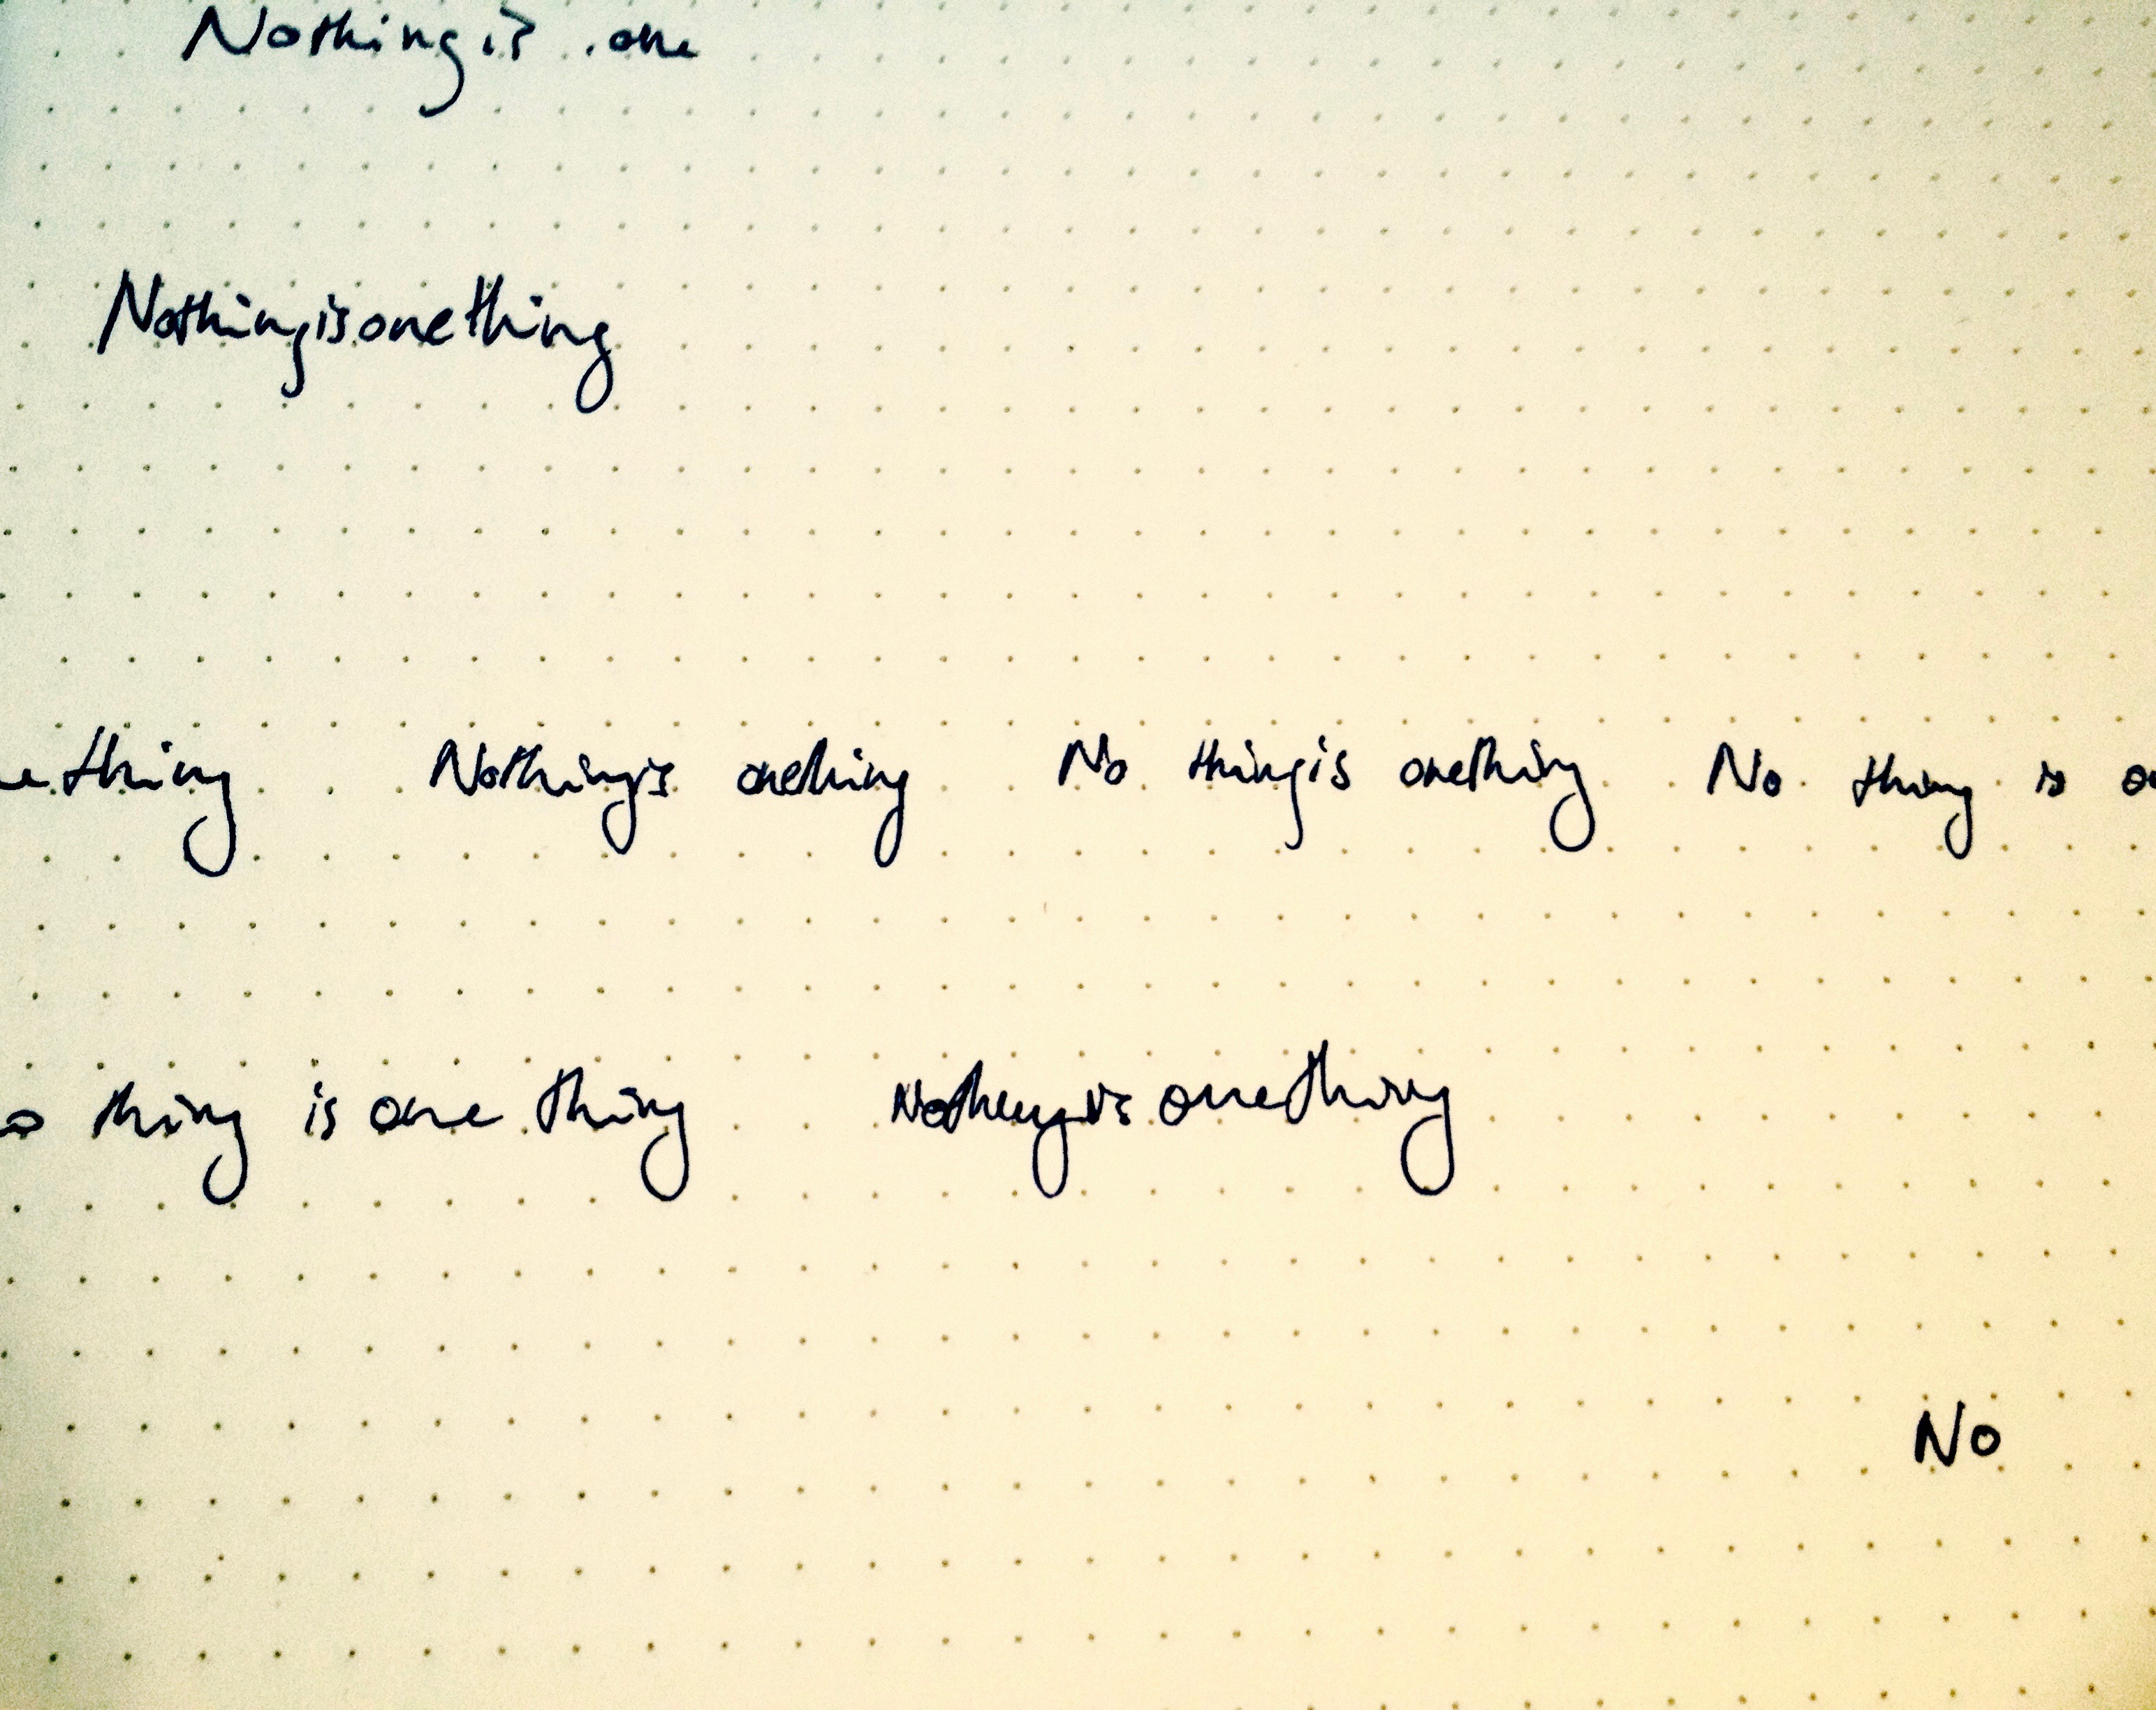 Nothing is one
Nothingisonething
e thing Nothingis onething No thingis onething No thing is o
o thing is one thing Nothingis onething
No